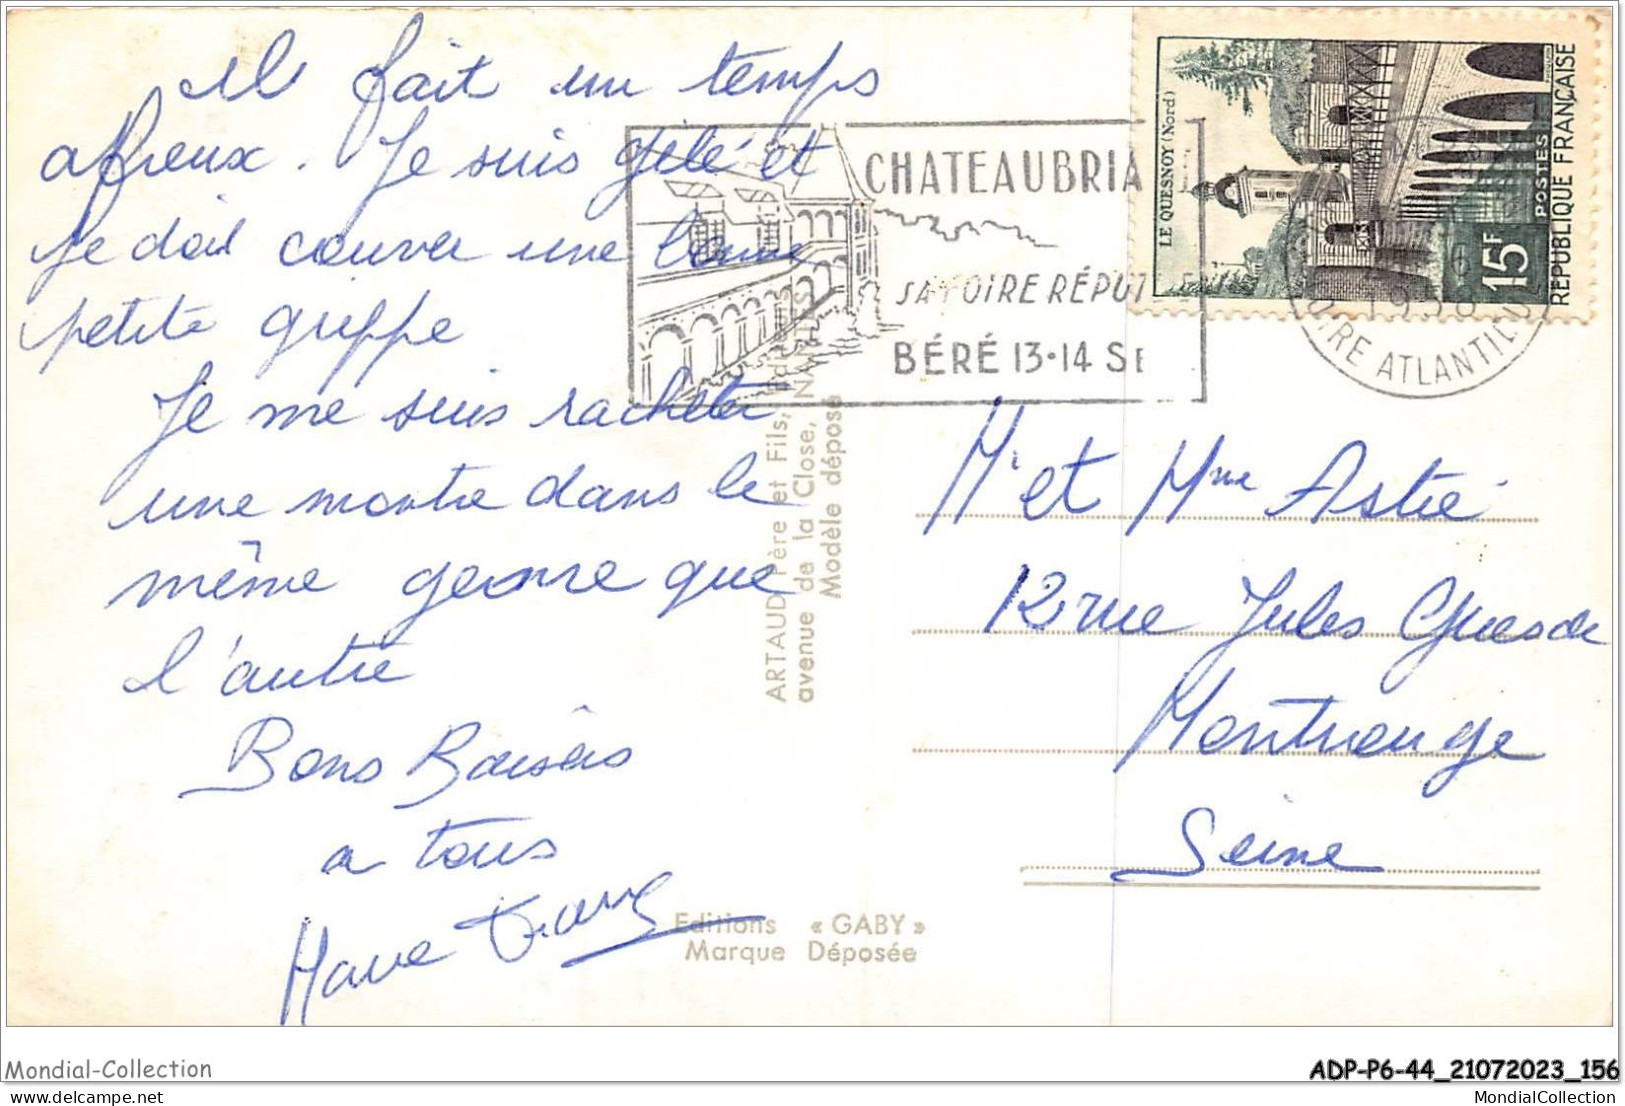 Il fait un temps
afreux. Je suis gélé et
Je dois couver une bonne
petite grippe
Je me suis racheter
une montre dans le
même genre que
l'autre
Bons Baisers
a tous
CHATEAUBRIA
SA FOIRE RÉPUT
BÉRÉ 13-14 SE
LE QUESNOY (Nord)
15F
POSTES
RÉPUBLIQUE FRANÇAISE
1958
ATLANTIQU
ARTAUD Père et Fils,
avenue de la Close,
Modèle déposé
Mr et Mme Astié
12 rue Jules Guesde
Montrouge
Seine
Editions « GABY »
Marque Déposée
Mondial-Collection
ADP-P6-44_21072023_156
MondialCollection